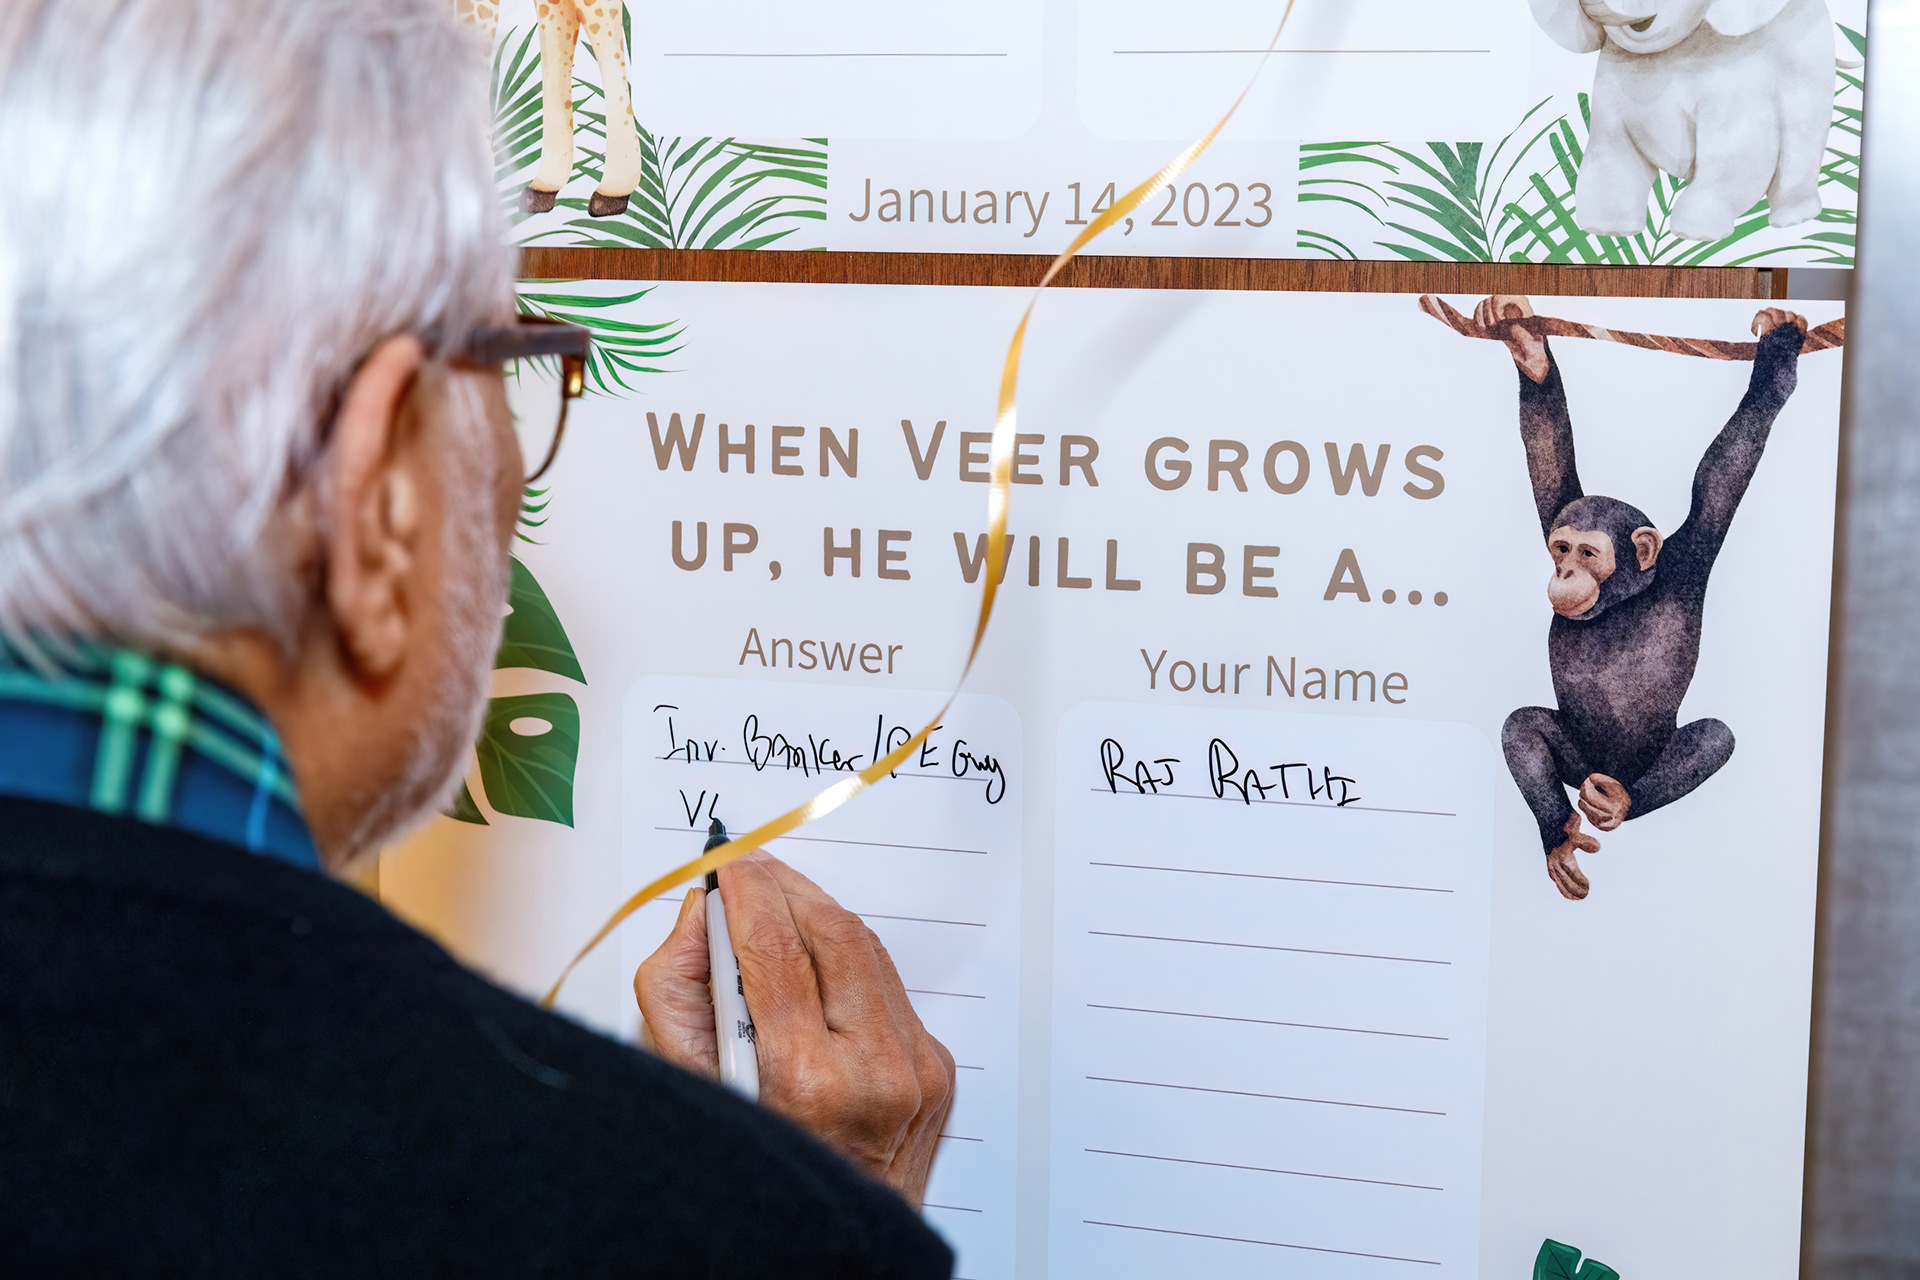 January 14, 2023
WHEN VEER GROWS
UP, HE WILL BE A...
Answer
Your Name
Inv. Banker/PE Guy
RAJ RATHI